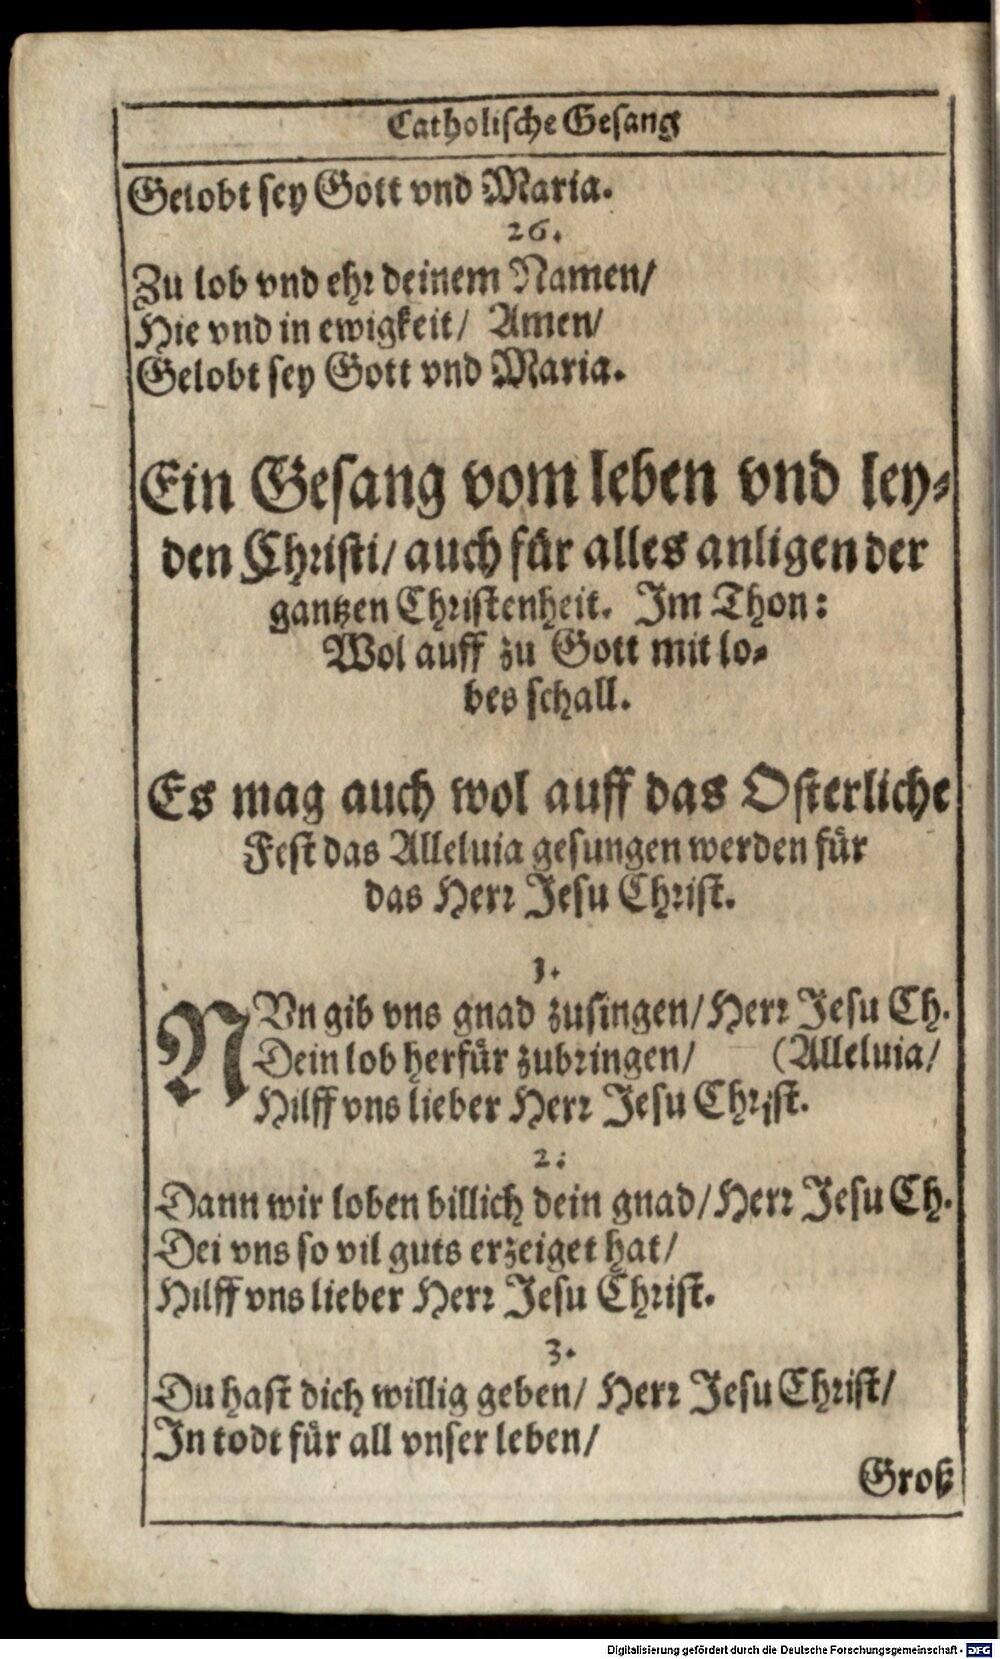 Catholische Gesang
Gelobt sey Gott vnd Maria.
26.
Zu lob vnd ehr deinem Namen/
Hie vnd in ewigkeit/ Amen/
Gelobt sey Gott vnd Maria.
Ein Gesang vom leben vnd ley-
den Christi/ auch für alles anligen der
gantzen Christenheit. Im Thon:
Wol auff zu Gott mit lo-
bes schall.
Es mag auch wol auff das Osterliche
Fest das Alleluia gesungen werden für
das Herr Jesu Christ.
1.
NVn gib vns gnad zusingen/ Herr Jesu Ch.
Dein lob herfür zubringen/ (Alleluia/
Hilff vns lieber Herr Jesu Christ.
2.
Dann wir loben billich dein gnad/ Herr Jesu Ch.
Dei vns so vil guts erzeiget hat/
Hilff vns lieber Herr Jesu Christ.
3.
Du hast dich willig geben/ Herr Jesu Christ/
In todt für all vnser leben/
Groß
Digitalisierung gefördert durch die Deutsche Forschungsgemeinschaft - DFG